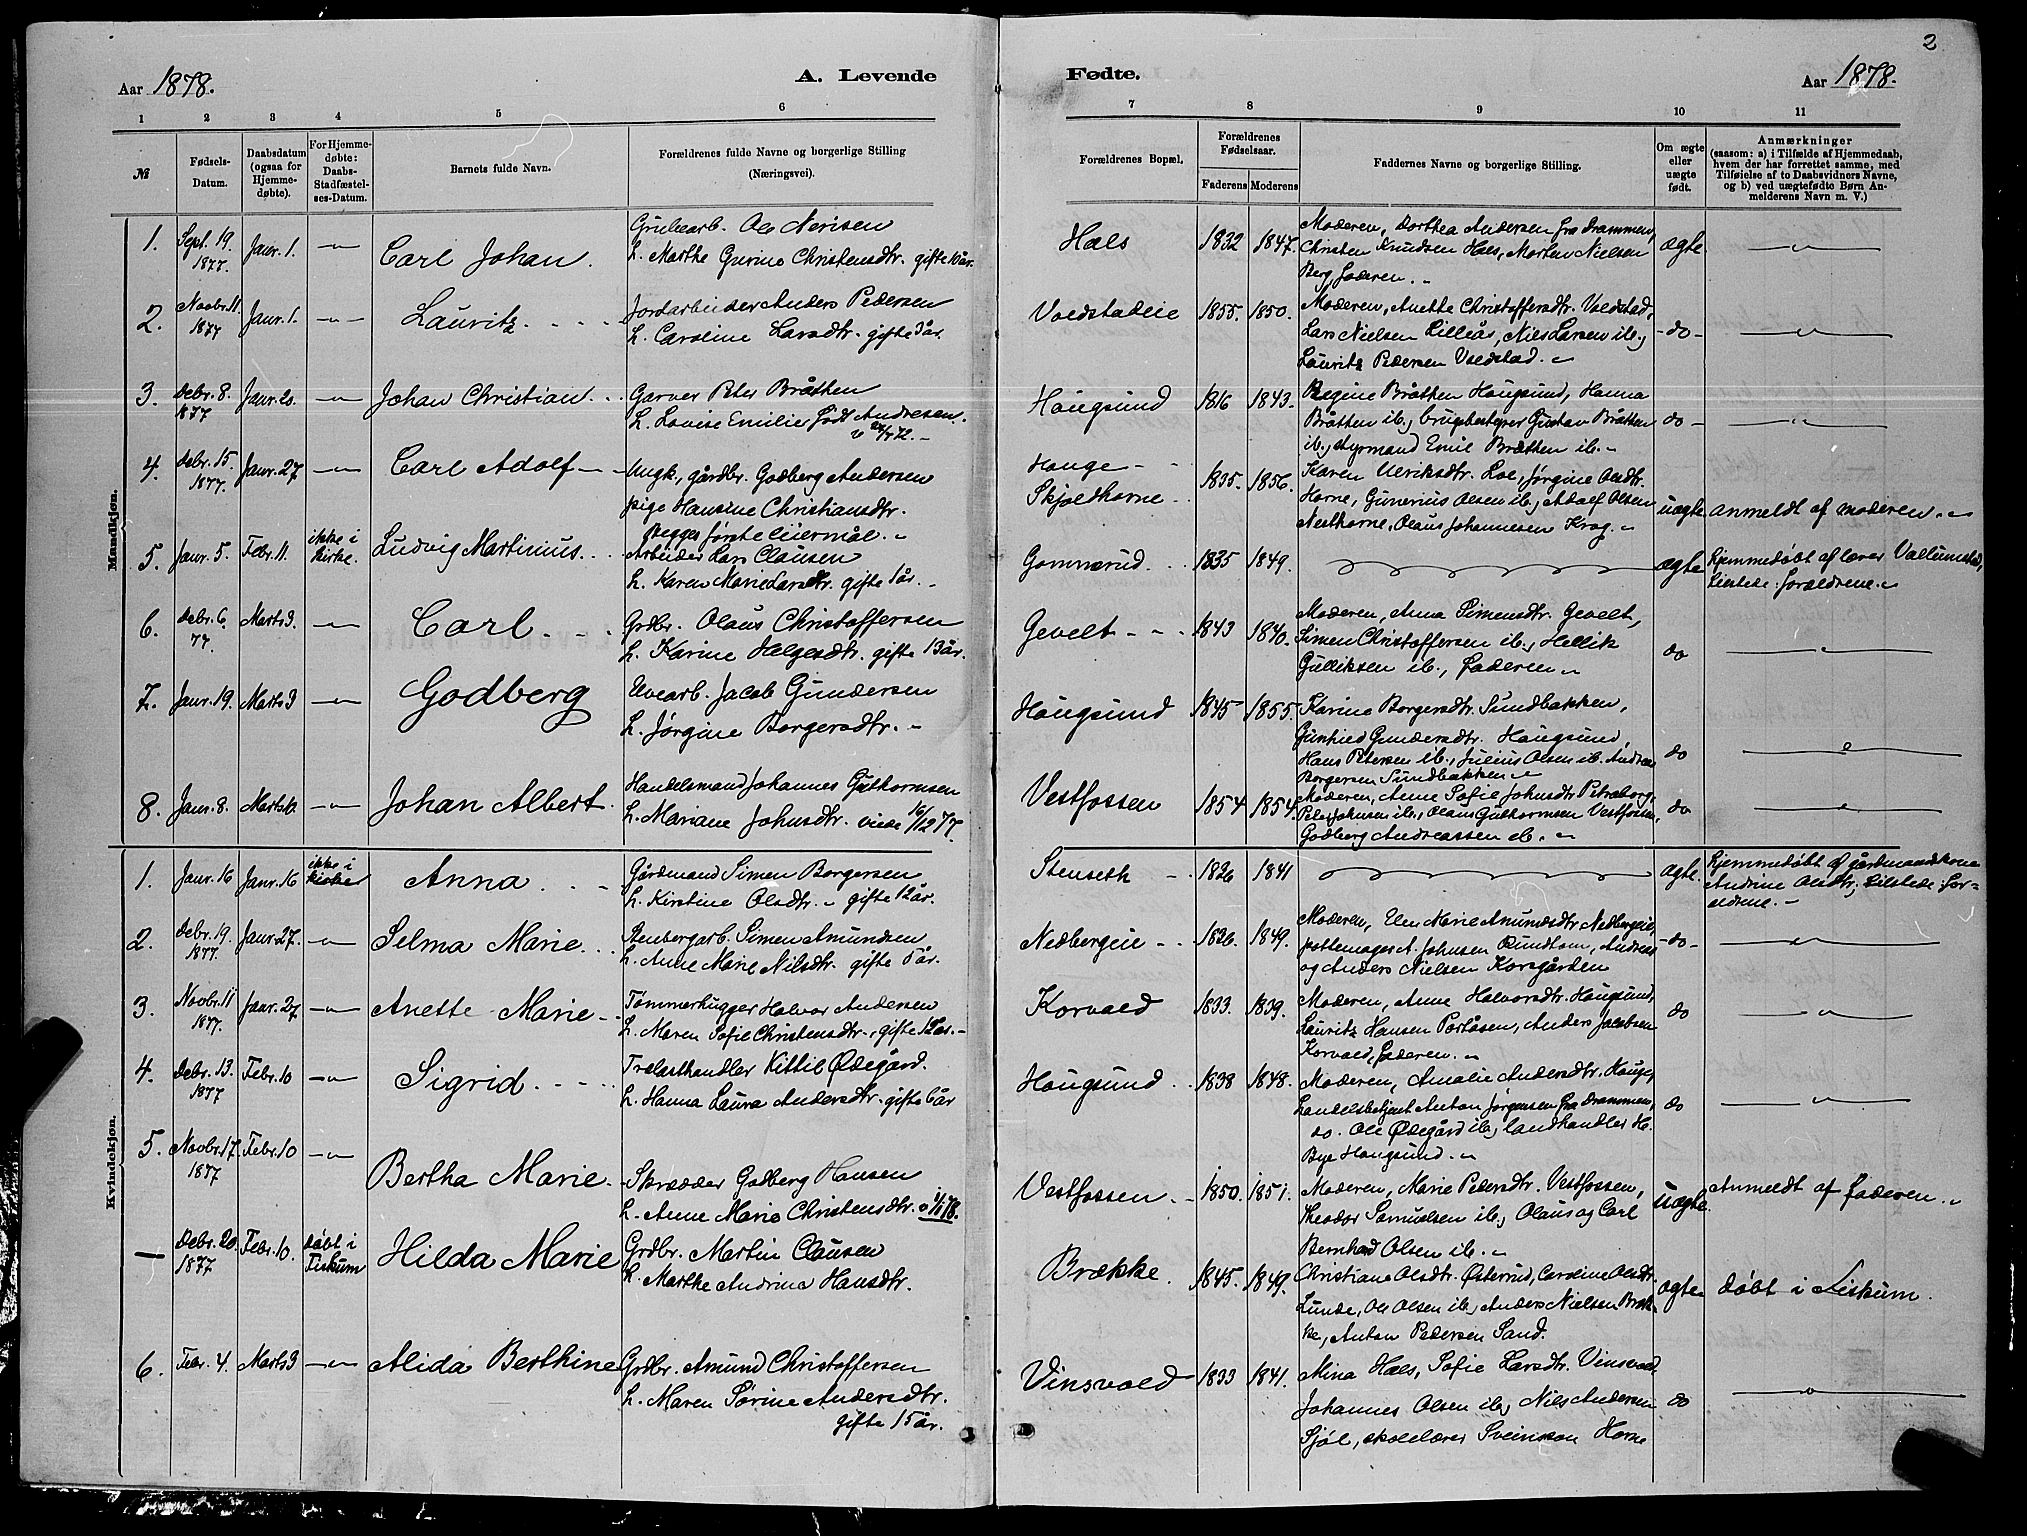 2
Aar 1878.
A. Levende
Fødte.
Aar 1878.
1 2 3 4 5 6 7 8 9 10 11
№
Fødsels-
Datum.
Daabsdatum
(ogsaa for
Hjemme-
døbte).
For Hjemme-
døbte:
Daabs-
Stadfæstel-
ses-Datum.
Barnets fulde Navn.
Forældrenes fulde Navne og borgerlige Stilling
(Næringsvei).
Forældrenes Bopæl.
Forældrenes
Fødselsaar.
Faderens Moderens
Faddernes Navne og borgerlige Stilling.
Om ægte
eller
uægte
født.
Anmærkninger
(saasom: a) i Tilfælde af Hjemmedaab,
hvem der har forrettet samme, med
Tilføielse af to Daabsvidners Navne,
og b) ved uægtefødte Børn An-
melderens Navn m. V.)
Mandkjøn.
1. Sept. 19. 1877. Janr. 1. Carl Johan.
Grubearb. Ole Nerisen
h. Marthe Gurine Christensdtr. gifte 10 år.
Hals 1832 1847.
Moderen, Dorthea Andersen fra Drammen,
Christen Knudsen Hals, Morten Nielsen
Berg, faderen.
ægte
2. Novbr. 11. 1877 Janr. 1. Lauritz
Jordarbeider Anders Pedersen
h. Caroline Larsdtr. gifte 3 år.
Voldstadeie 1855. 1850.
Moderen, Anette Christoffersdtr. Voldstad,
Lars Nielsen Lilleås, Nils Larsen ib.,
Lauritz Pedersen Voldstad.
do
3. Debr. 8. 1877 Janr. 20. Johan Christian
Garver Peter Bråtten
h. Lovise Emilie født Andresen.
Hougsund 1816 1843.
Regine Bråtten Hougsund, Hanna
Bråtten ib., brugsbestyrer Gustav Bråtten
ib., styrmand Emil Bråtten ib.
do
4. Debr. 15. 1877 Janr. 27 Carl Adolf
Ungk., gårdbr. Godberg Andersen
pige Hansine Christiansdtr.
Begges første leiermål.
Houge-
Skjoldhorne 1835. 1856.
Karen Ulriksdtr. Loe, Jørgine Olsdtr.
Horne, Gunerius Olsen ib., Adolf Olsen
Nesthorne, Olaus Johannesen Krog.
uægte anmeldt af moderen.
5. Janr. 5. Febr. 11. ikke i kirke. Ludvig Martinius
Arbeider Lars Clausen
h. Karen Marie Larsdtr. gifte 1 år.
Gommerud 1835 1849.
ægte hjemmedøbt af lærer
tilstede: forældrene.
6. Debr. 6. 77. Marts 3. Carl
Grdbr. Olaus Christoffersen
h. Karine Helgesdtr. gifte 13 år.
Gevelt 1843 1840.
Moderen, Anna Simensdtr. Gevelt,
Simen Christoffersen ib., Hellik
Gulliksen ib., faderen
do
7. Janr. 19. Marts 3 Godberg
Uvearb. Jacob Gundersen
h. Jørgine Borgersdtr.
Hougsund 1845 1855.
Karine Borgersdtr. Sundbakken,
Gunhild Gundersdtr. Hougsund,
Hans Petersen ib., Julius Olsen ib. Andreas
Borgersen Sundbakken
do
8. Janr. 8. Marts Johan Albert
Handelsmand Johannes Guthormsen
h. Mariane Johnsdtr. viede 16/12 77.
Vestfossen 1854 1854.
Moderen, Anne Sofie Johnsdtr. Petersborg,
Peter Johnsen ib., Olaus Guthormsen Vestfossen,
Godberg Andreassen ib.
do
Kvindekjøn.
1. Janr. 16 Janr. 16 ikke i kirke Anna
Gårdmand Simen Borgersen
h. Kirstine Olsdtr. gifte 12 år.
Stenseth 1826 1841
ægte. hjemmedøbt af gårdmandskone
Andrine Olsdtr., tilstede: for-
ældrene.
2. Debr. 19. 1877. Janr. 27. Selma Marie
Stenbergarb. Simen Amundsen
h. Anne Marie Nilsdtr. gifte 5 år.
Nedbergeie 1826. 1849.
Moderen, Elen Marie Amundsdtr. Nedbergeie,
pottemager A. Johnsen Rundtom, Andreas
og Anders Nielsen Korsgården
do
3. Novbr. 11 1877. Janr. 27 Anette Marie
Tømmerhugger Halvor Andersen
h. Maren Sofie Christensdtr., gifte 12 år.
Korvald 1833. 1839.
Moderen, Anne Halvorsdtr. Hougsund,
Lauritz Hansen Portåsen, Anders Jacobsen
Korvald, faderen.
do
4. Debr. 13. 1877 Febr. 10 Sigrid
Trelasthandler Kittil Ødegård.
h. Hanna Laura Andersdtr. gifte 6 år
Hougsund 1838 1848.
Moderen, Amalie Andersdtr. Houge,
handelsbetjent Anton Jørgensen fra Drammen,
do. Ole Ødegård ib., landhandler H.
Bye Hougsund.
do
5. Novbr. 17. 1877 Febr. 10 Bertha Marie
Skrædder Godberg Hansen
h. Anne Marie Christensdtr. v 1/1 78.
Vestfossen 1850. 1851.
Moderen, Marie Pedersdtr. Vestfossen,
Theodor Samuelsen ib., Olaus og Carl
Bernhard Olsen ib.
uægte. Anmeldt af faderen.
— Debr. 20. 1877 Febr. 10. døbt i Fiskum Hilda Marie
Grdbr. Martin Clausen
h. Marthe Andrina Hansdtr.
Brække. 1845. 1849.
Christiane Olsdtr. Østerud, Caroline Olsdtr.
Lunde, Ole Olsen ib., Anders Nielsen Bræk-
ke, Anton Pedersen Sand.
ægte døbt i Fiskum.
6. Febr. 4. Marts 3 Alida Berthine
Grdbr. Amund Christoffersen
h. Maren Sørine Andersdtr.
gifte 15 år.
Vinsvold 1833 1841.
Mina Hals, Sofie Larsdtr. Vinsvold,
Johannes Olsen ib., Nils Andersen
Sjøl, skolelærer Svensson Horne
do